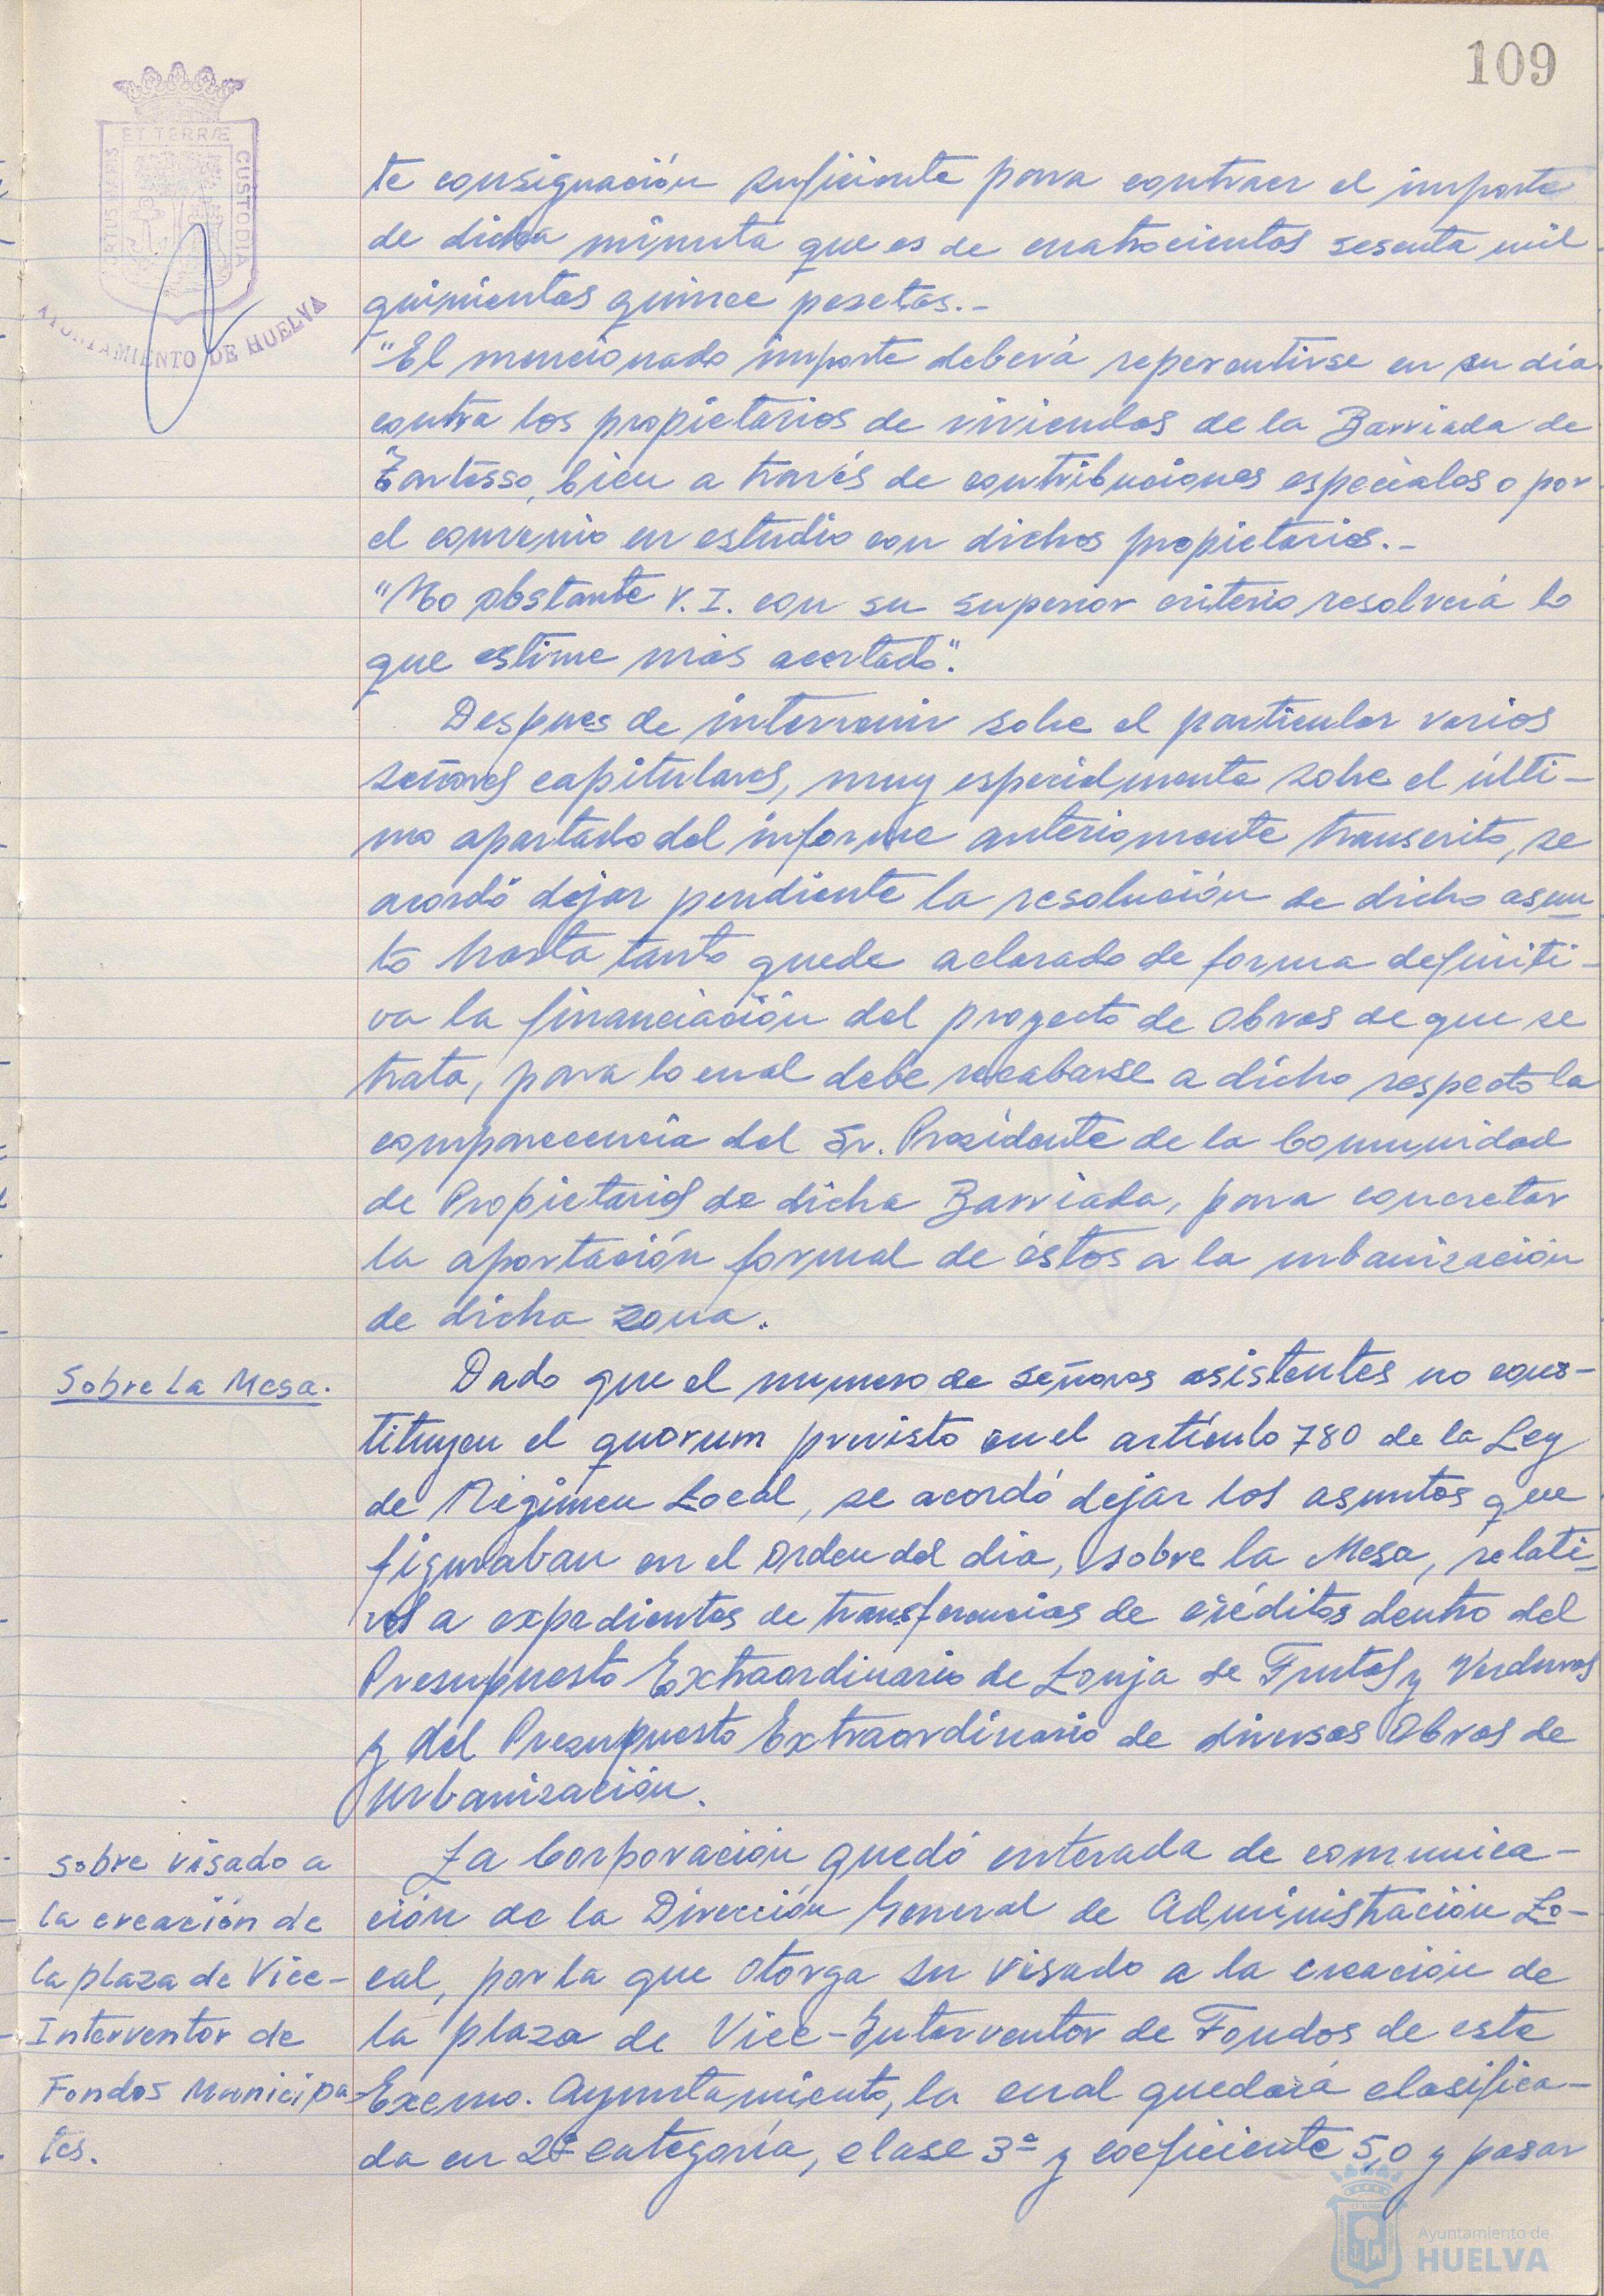 109
ET TERRÆ
CUSTODIA
PORTUS MARIS
AYUNTAMIENTO DE HUELVA
te consignación suficiente para contraer el importe
de dicha minuta que es de cuatrocientas sesenta mil
quinientas quince pesetas.-
"El mencionado importe deberá repercutirse en su día
contra los propietarios de viviendas de la Barriada de
Tartesso, bien a través de contribuciones especiales o por
el convenio en estudio con dichos propietarios.-
"No obstante V.I. con su superior criterio resolverá lo
que estime más acertado".
Despues de intervenir sobre el particular varios
señores capitulares, muy especialmente sobre el últi-
mo apartado del informe anteriormente transcrito, se
acordó dejar pendiente la resolución de dicho asun
to hasta tanto quede aclarado de forma definiti-
va la financiación del proyecto de Obras de que se
trata, para lo cual debe recabarse a dicho respecto la
comparecencia del Sr. Presidente de la Comunidad
de Propietarios de dicha Barriada, para concretar
la aportación formal de éstos a la urbanización
de dicha zona.
Sobre la Mesa.
Dado que el numero de señores asistentes no cons-
tituyen el quorum previsto en el artículo 780 de la Ley
de Régimen Local, se acordó dejar los asuntos que
figuraban en el Orden del dia, sobre la Mesa, relati-
vos a expedientes de transferencias de créditos dentro del
Presupuesto Extraordinario de Lonja de Frutas y Verduras
y del Presupuesto Extraordinario de diversas Obras de
Urbanización.
Sobre visado a
la creación de
la plaza de Vice-
Interventor de
Fondos Municipa-
les.
La Corporación quedó enterada de comunica-
ción de la Dirección General de Administración Lo-
cal, por la que otorga su visado a la creación de
la plaza de Vice-Interventor de Fondos de este
Excmo. Ayuntamiento, la cual quedará clasifica-
da en 2ª categoría, clase 3ª y coeficiente 5,0 y pasar
Ayuntamiento de
HUELVA